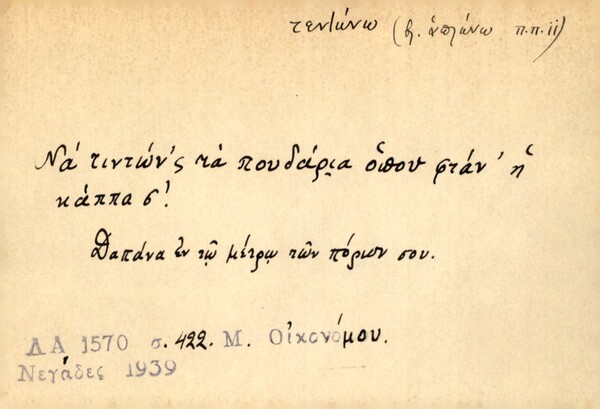 τεντώνω (βλ. ἁπλώνω π.π. ii)
Νά τιντών'ς τά πουδάρια ὅπου φτάν' ἡ
κάππα σ'!
Δαπάνα ἐν τῷ μέτρῳ τῶν πόρων σου.
ΛΑ 1570 σ. 422. Μ. Οἰκονόμου.
Νεγάδες 1939